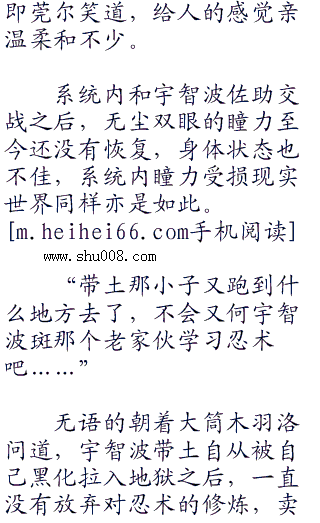 即莞尔笑道，给人的感觉亲
温柔和不少。
系统内和宇智波佐助交
战之后，无尘双眼的瞳力至
今还没有恢复，身体状态也
不佳，系统内瞳力受损现实
世界同样亦是如此。
[m.heihei66.com手机阅读]
www.shu008.com
“带土那小子又跑到什
么地方去了，不会又何宇智
波斑那个老家伙学习忍术
吧……”
无语的朝着大筒木羽洛
问道，宇智波带土自从被自
己黑化拉入地狱之后，一直
没有放弃对忍术的修炼，卖